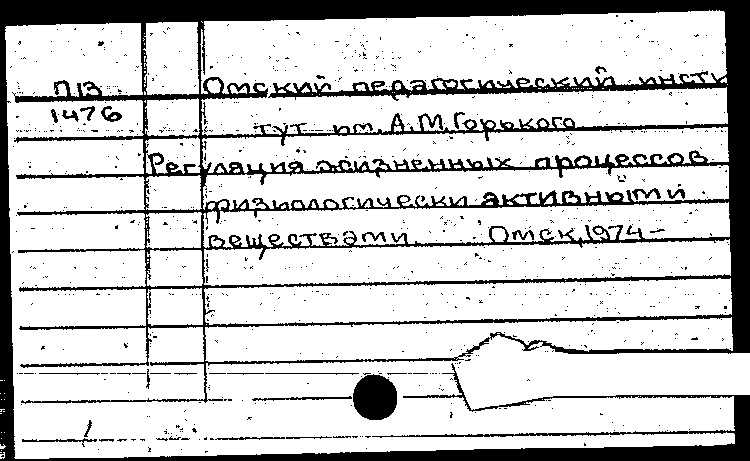 П13 Омский педагогический инсти
1476 тут им. А.М.Горького
Регуляция жизненных процессов
физиологически активными
веществами. Омск, 1974-